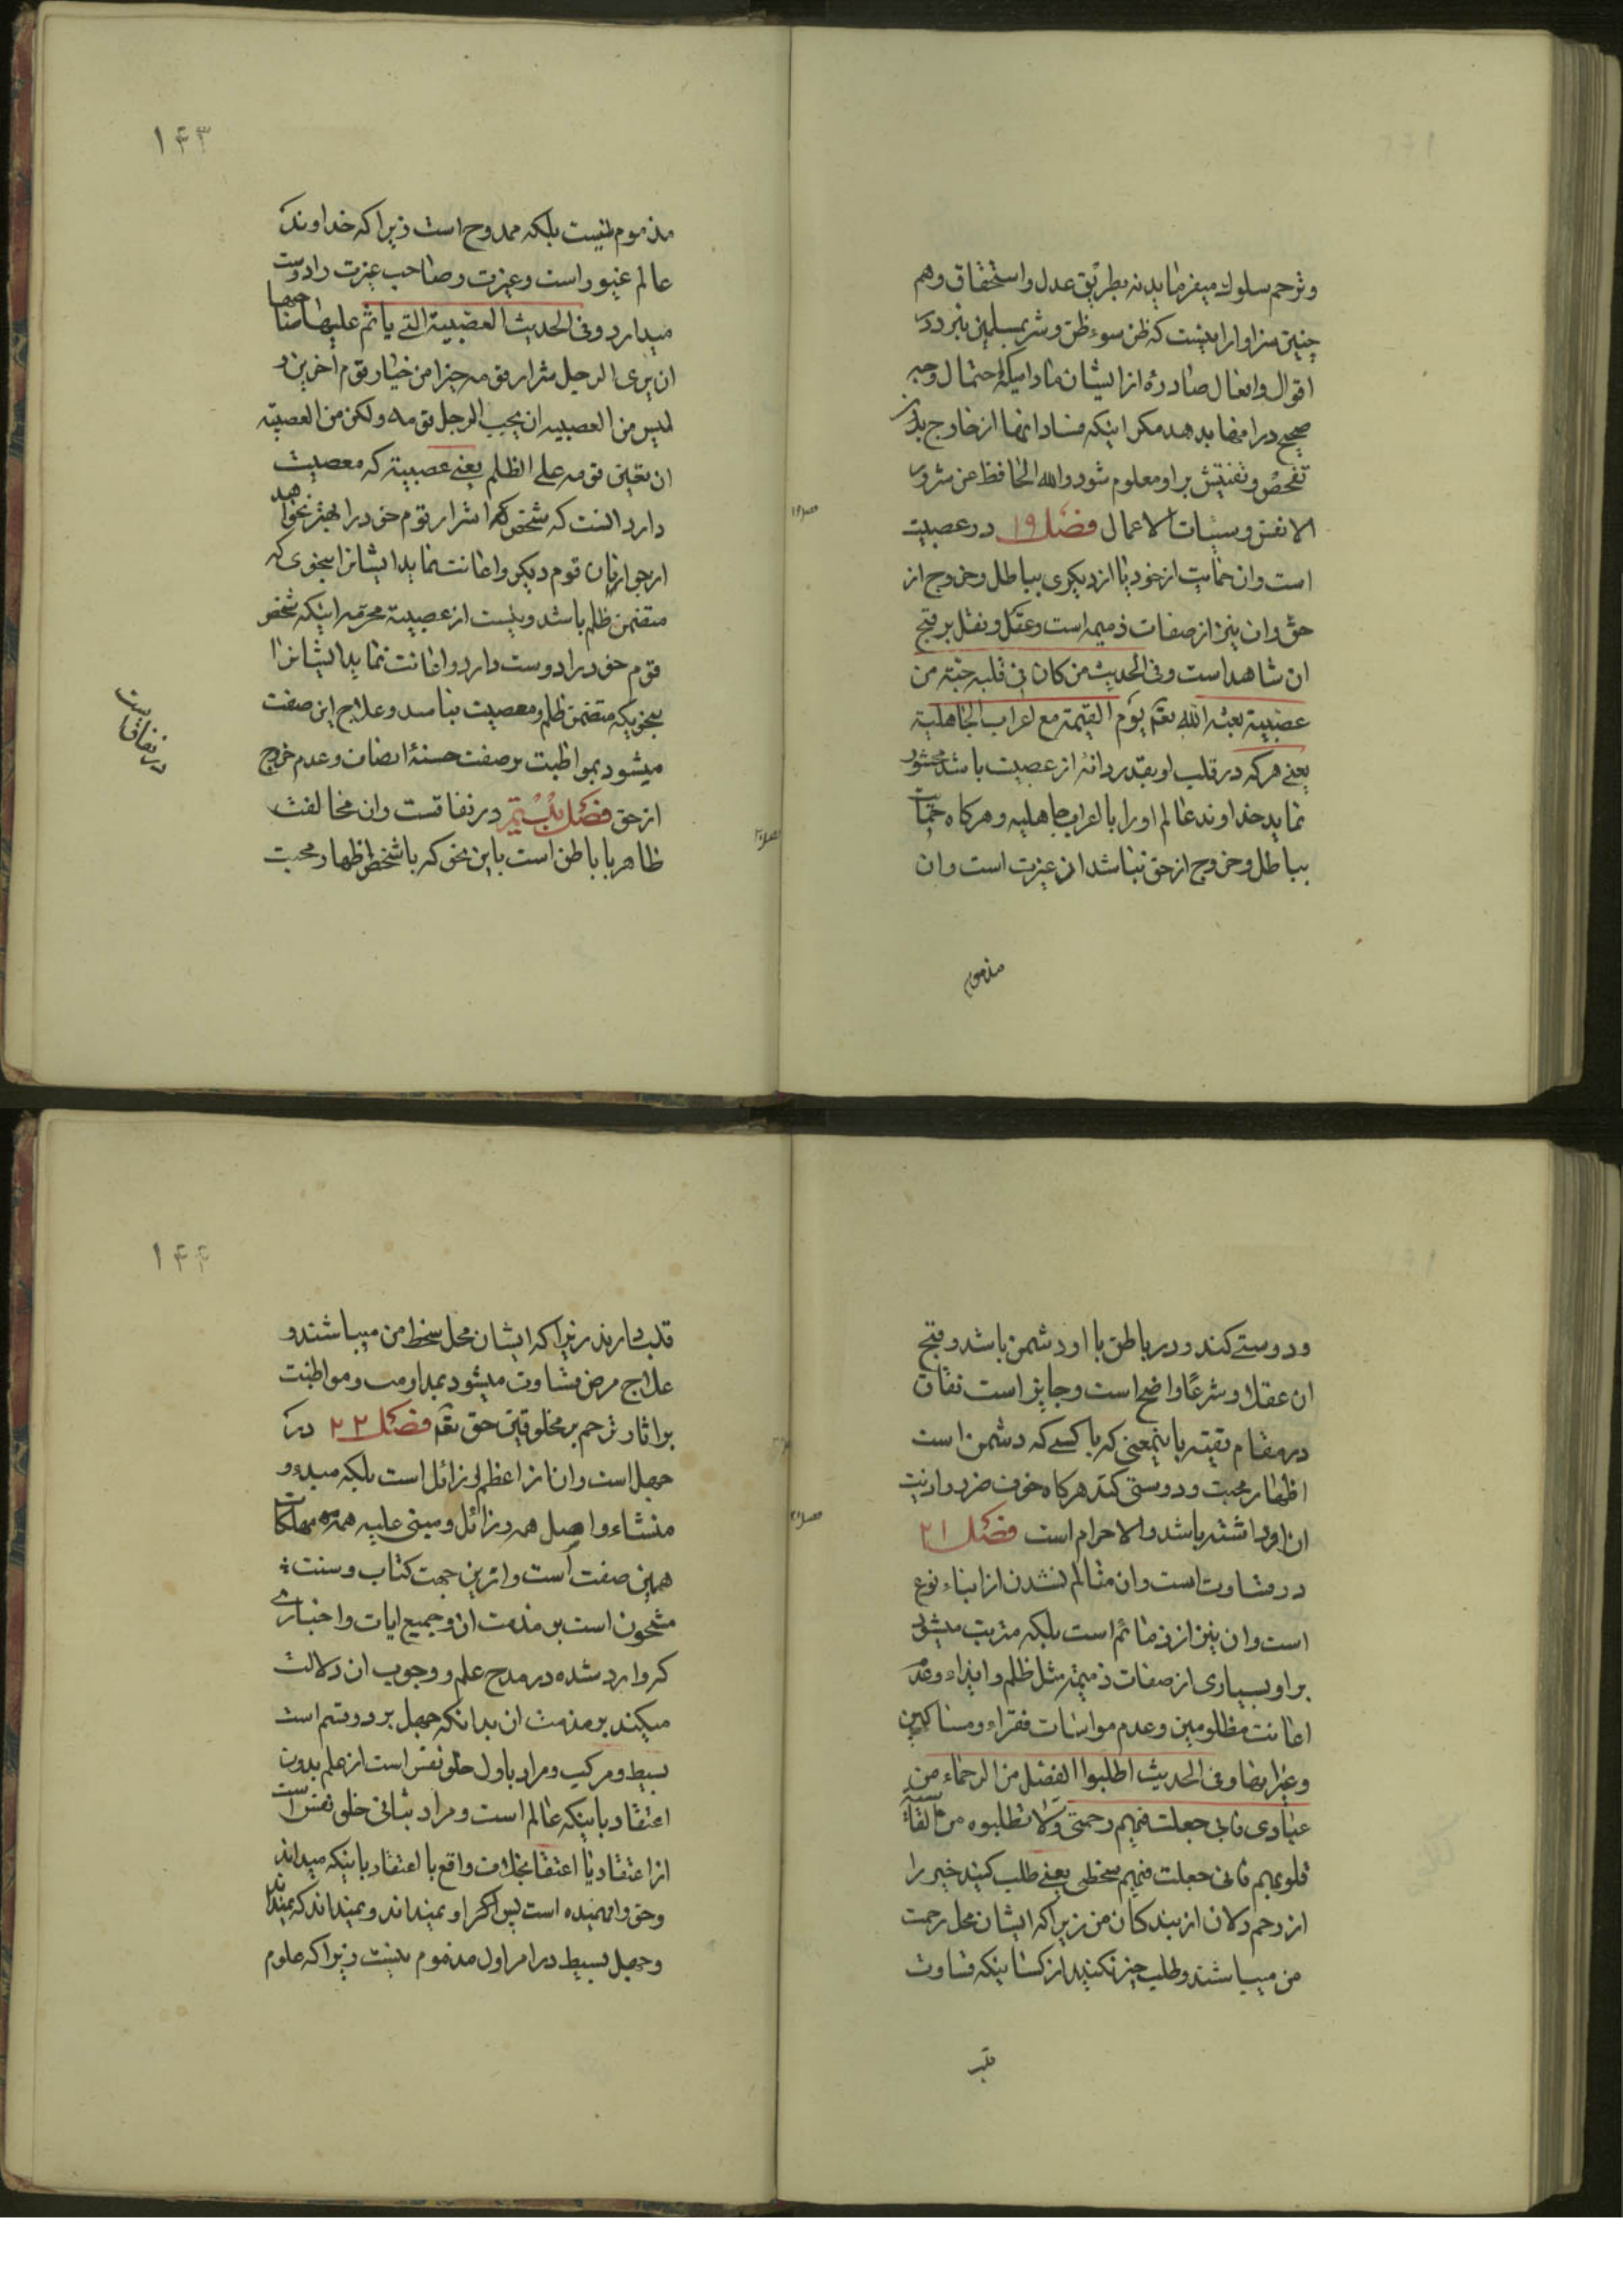 وترحم سلوك میفرماید نه بطریق عدل واستحقاق وهم
چنین سزاوار این نیست که ظن سوء ظن وشر بمسلمین ببرد در
اقوال وافعال صادره از ایشان مادامیکه احتمال وجه
صحیح در امضا بدهد مکر اینکه فساد انها از خارج بدون
تفحص وتفتیش بر او معلوم شود والله الحافظ عن شرور
الانفس وسیئات الاعمال فصل ۱۹ در عصبیت
است وان حمایت از خود یا از دیکری بباطل وخروج از
حق وان نیز از صفات ذمیمه است وعقل ونقل بر قبح
ان شاهد است وفی الحدیث من کان فی قلبه حبة من
عصبیة بعثه الله یوم القیمة مع اعراب الجاهلیة
یعنی هرکه در قلب او بقدر دانه از عصبیت باشد محشور
نماید خداوند عالم او را با اعراب جاهلیه وهرکاه حمایت
بباطل وخروج از حق نباشد ان غیرت است وان
مذموم
۱۴۳
مذموم نیست بلکه ممدوح است زیرا که خداوند
عالم غیور است وغیرت وصاحب غیرت را دوست
میدارد وفی الحدیث العصبیة التی یاثم علیها صاحبها
ان یری الرجل شرار قومه خیرا من خیار قوم اخرین و
لیس من العصبیه ان یحب الرجل قومه ولکن من العصبیة
ان یعین قومه علی الظلم یعنی عصبیة که معصیت
دارد انست که شخص اشرار قوم خود را بهتر بخواهد
از خوبان قوم دیکر واعانت نماید ایشانرا بنحوی که
متضمن ظلم باشد ونیست از عصبیة محرمه اینکه شخص
قوم خود را دوست دارد واعانت نماید ایشانرا
بنحویکه متضمن ظلم ومعصیت نباشد وعلاج این صفت
میشود بمواظبت بر صفت حسنهٔ انصاف وعدم خروج
از حق فصل بیستم در نفاقست وان مخالفت
ظاهر با باطن است باین نحو که با شخص اظهار محبت
در نفاق است
ودوستی کند ودر باطن با او دشمن باشد وقبح
ان عقلا وشرعا واضح است وجایز است نفاق
در مقام تقیه باینمعنی که با کسی که دشمن است
اظهار محبت ودوستی کند هرکاه خوف ضرر واذیت
از او داشته باشد والا حرام است فصل ۲۱
در قساوت است وان متالم نشدن از ابناء نوع
است وان نیز از ذمائم است بلکه مترتب میشود
بر او بسیاری از صفات ذمیمه مثل ظلم وایذاء وعدم
اعانت مظلومین وعدم مواسات فقراء ومساکین
وغیر اینها وفی الحدیث اطلبوا الفضل من الرحماء من
عبادی فانی جعلت فیهم رحمتی ولا تطلبوه من القاسیة
قلوبهم فانی جعلت فیهم سخطی یعنی طلب کنید خیر را
از رحم دلان از بندکان من زیرا که ایشان محل رحمت
من میباشند وطلب خیر نکنید از کسانیکه قساوت
قلب
۱۴۴
قلب دارند زیرا که ایشان محل سخط من میباشند و
علاج مرض قساوت میشود بمداومت ومواظبت
بر اثار ترحم بر مخلوقین حق فصل ۲۲ در
جهل است وان از اعظم رزائل است بلکه مبدء و
منشاء واصل همه رزائل ومبنی علیه همه مهلکات
همین صفت است واز این جهت کتاب وسنت
مشحون است بر مذمت ان وجمیع ایات واخباری
که وارد شده در مدح علم ووجوب ان دلالت
میکند بر مذمت ان بدانکه جهل بر دو قسم است
بسیط ومرکب ومراد باول خلو نفس است از علم بدون
اعتقاد باینکه عالم است ومراد بثانی خلو نفس است
از اعتقاد یا اعتقاد بخلاف واقع با اعتقاد باینکه میداند
وحق را فهمیده است پس اکر او نمیداند ونمیداند که نمیداند
وجهل بسیط در امر اول مذموم نیست زیرا که علوم